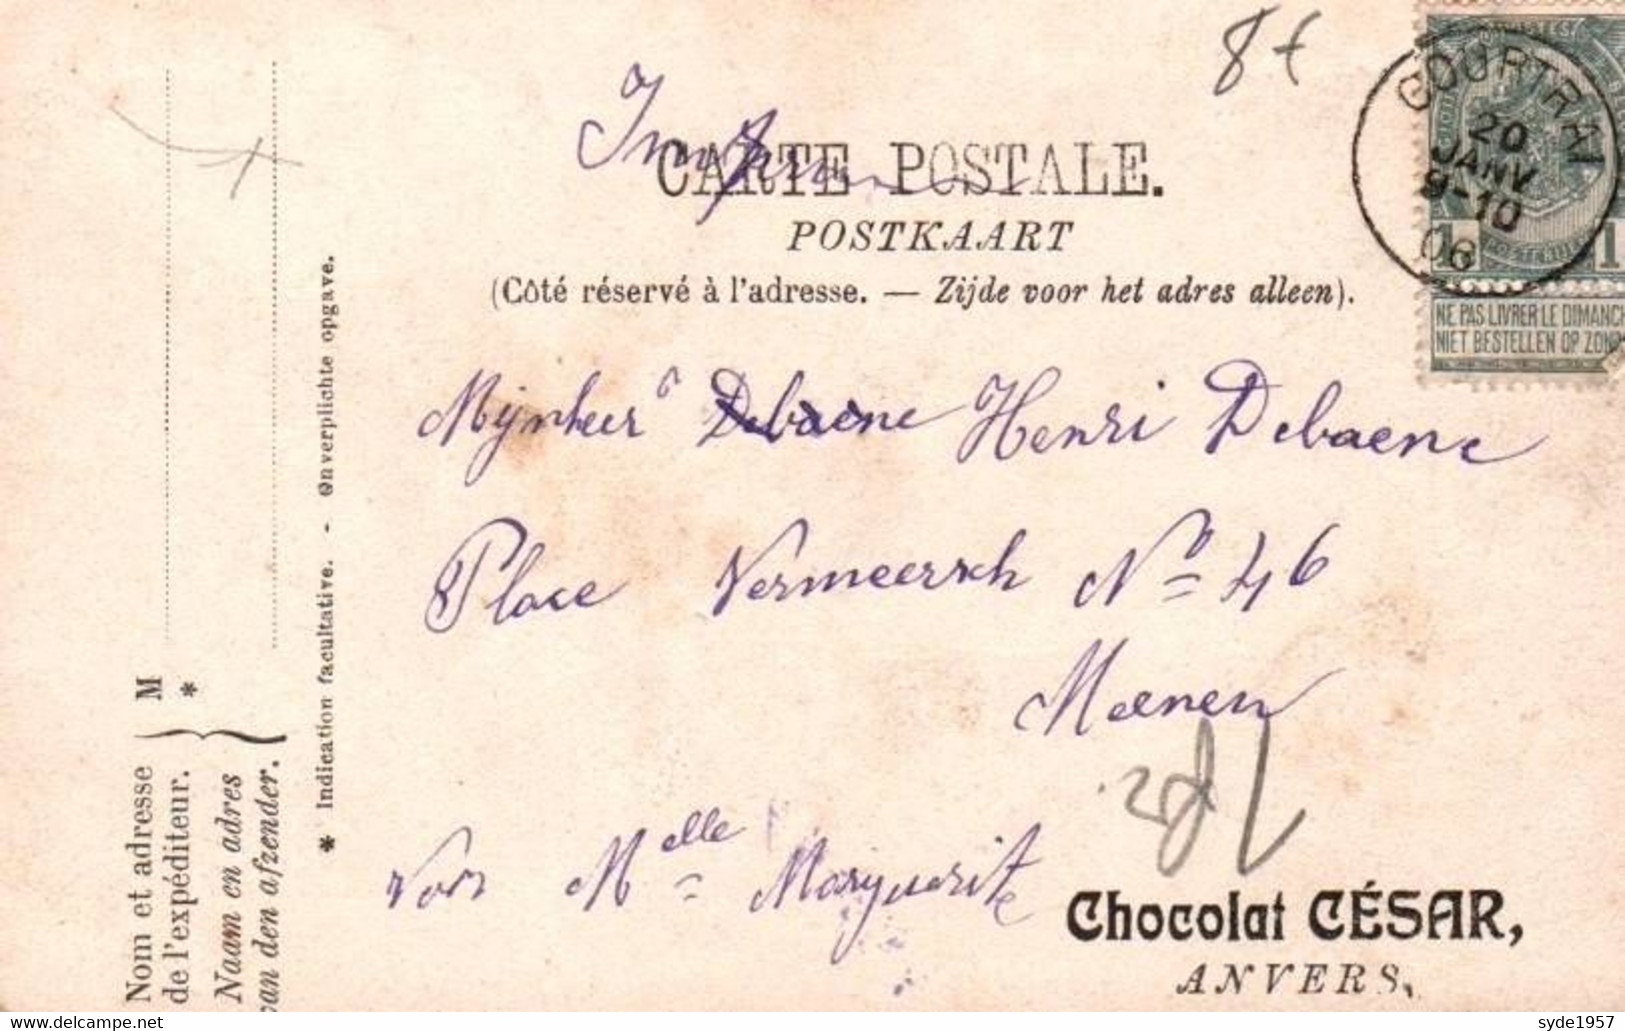 8 t
COURTRAI
20
JANV
9-10
06
1 1
NE PAS LIVRER LE DIMANCH
NIET BESTELLEN OP ZOND
CARTE POSTALE.
POSTKAART
(Côté réservé à l'adresse. — Zijde voor het adres alleen).
Mijnheer Debaene Henri Debaene
Place Vermeersch No 46
Meenen
voor Melle Marguerite
Chocolat CÉSAR,
ANVERS.
M
*
Nom et adresse
de l'expéditeur.
Naam en adres
van den afzender.
* Indication facultative. - Onverplichte opgave.
delcampe.net
syde1957